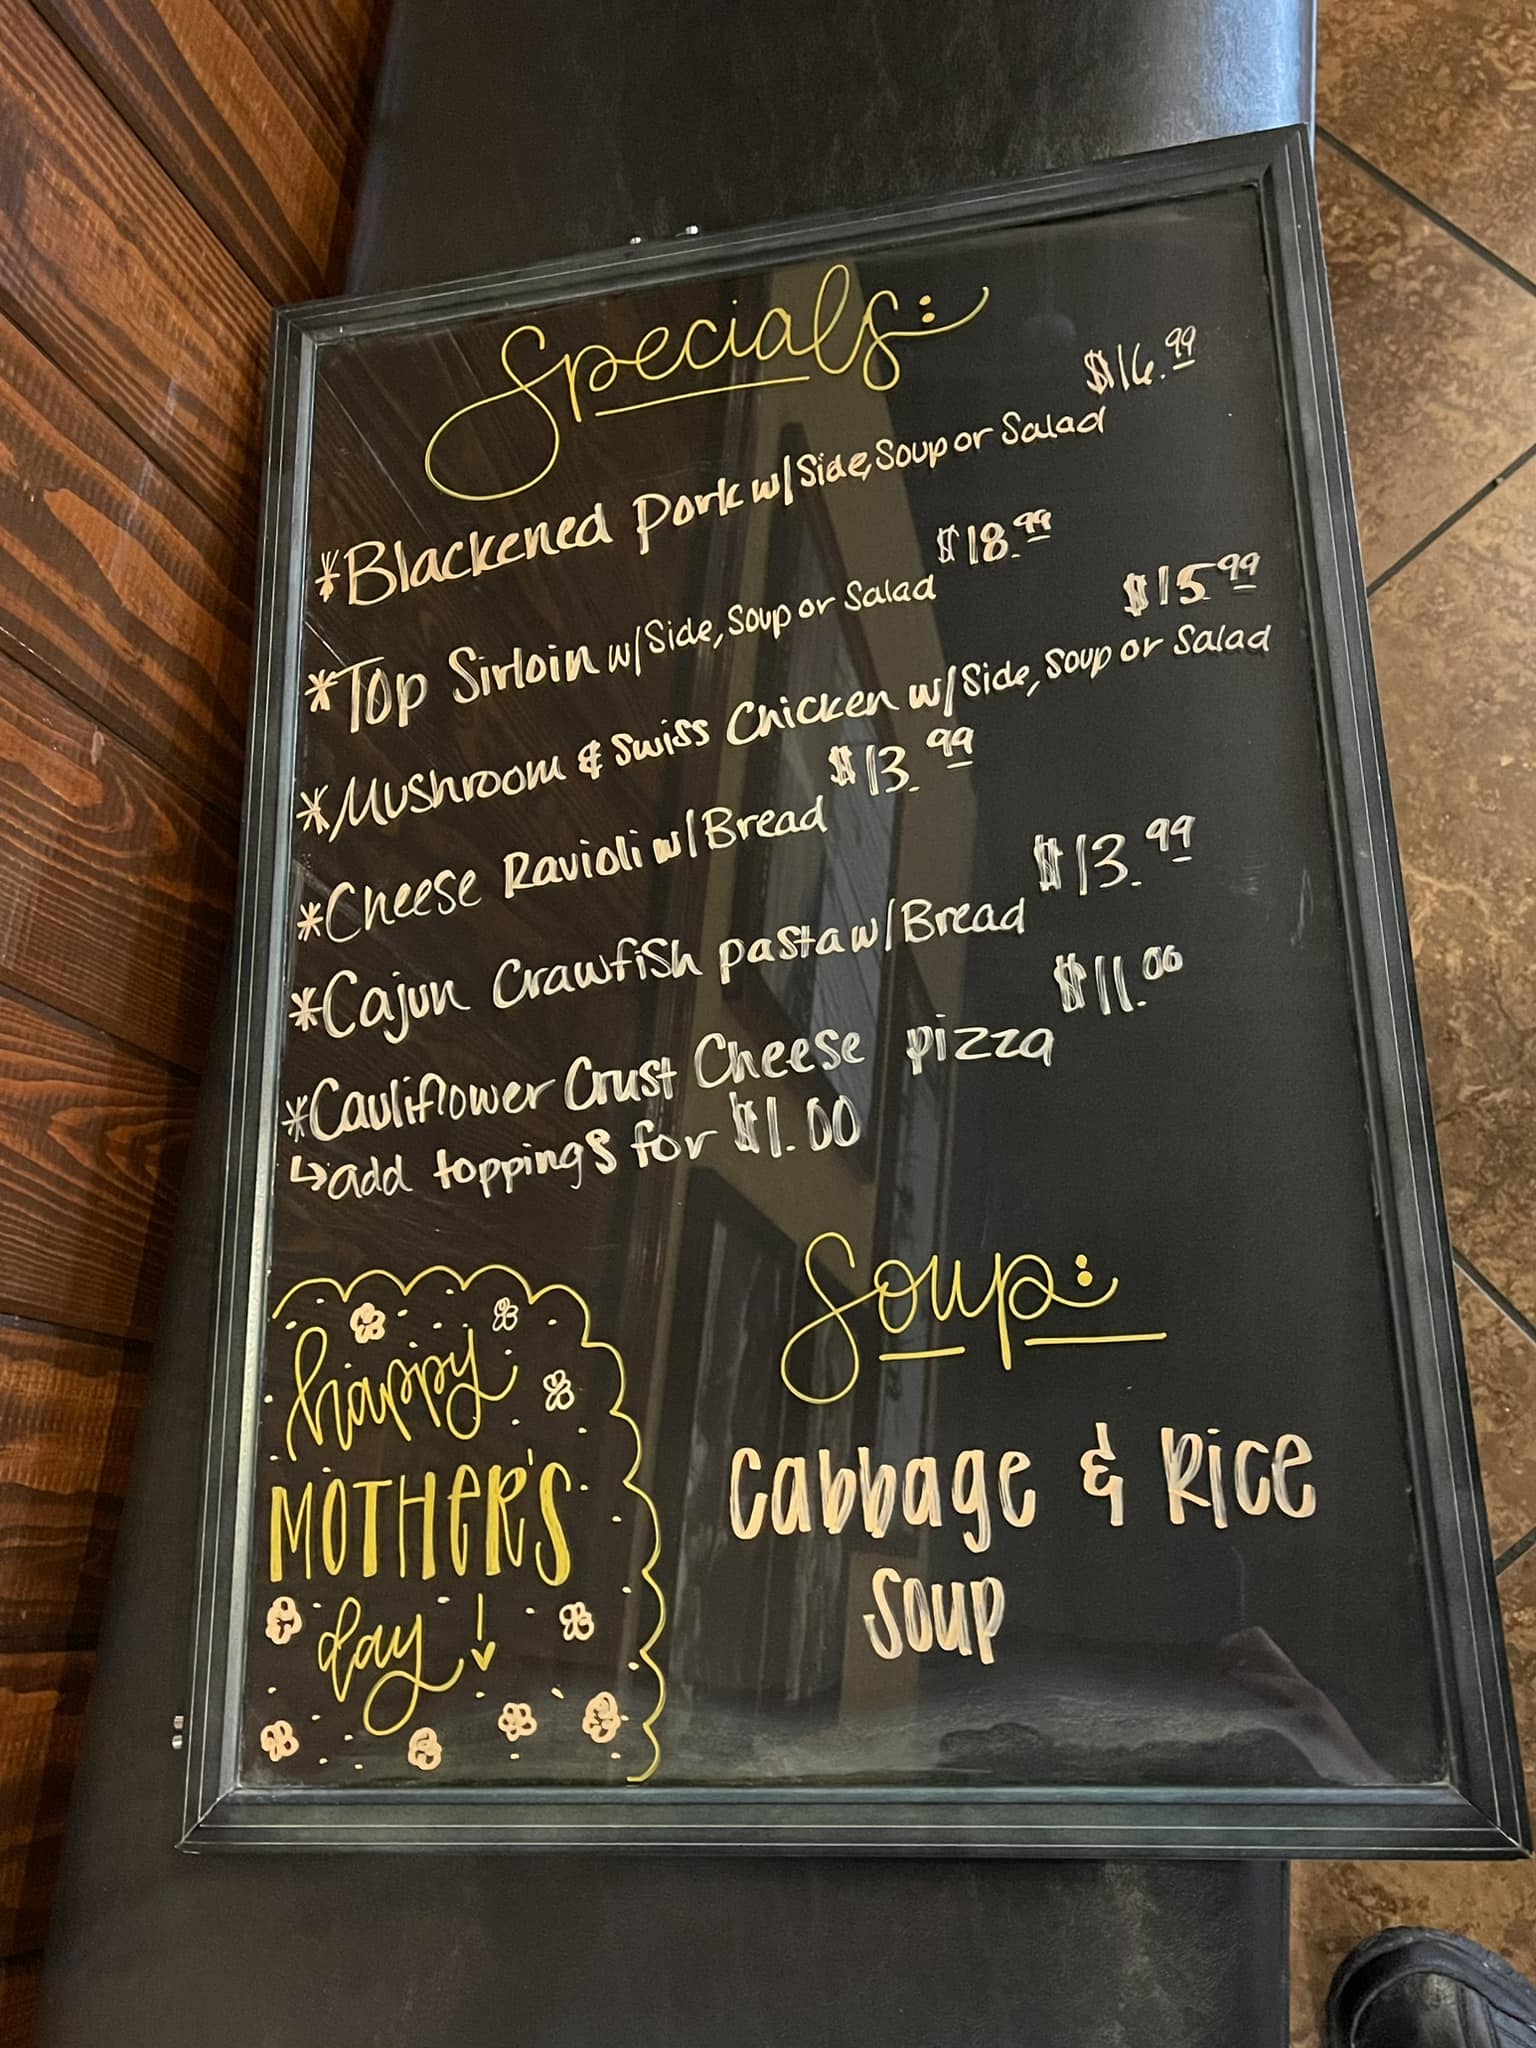 Specials:
*Blackened Pork w/ Side, Soup or Salad $16.99
*Top Sirloin w/ Side, Soup or Salad $18.99
*Mushroom & Swiss Chicken w/ Side, Soup or Salad $15.99
*Cheese Ravioli w/ Bread $13.99
*Cajun Crawfish pasta w/ Bread $13.99
*Cauliflower Crust Cheese pizza $11.00
↳add toppings for $1.00
happy
MOTHER'S
day ↓
Soup:
Cabbage & Rice
Soup